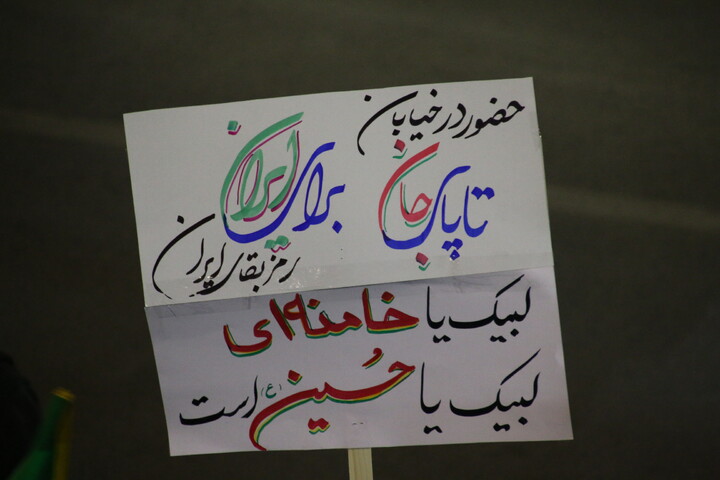 حضور در خیابان
تا پای جان برای ایران
رمز بقای ایران
لبیک یا خامنه‌ای
لبیک یا حسین (ع) است